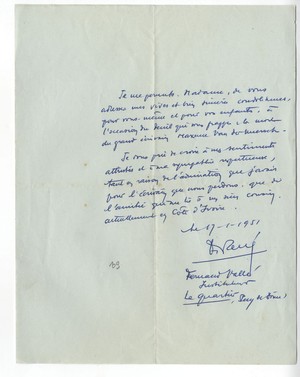 Je me permets, Madame, de vous
adresser mes vives et bien sincères condoléances,
pour vous-même et pour vos enfants, à
l'occasion du deuil qui vous frappe : la mort
du grand écrivain Maxence Van der Meersch.
Je vous prie de croire à mes sentiments
attristés et à ma sympathie respectueuse,
tant en raison de l'admiration que j'avais
pour l'écrivain que nous perdons, que de
l'amitié qui me lie à un sien cousin,
actuellement en Côte d'Ivoire.
Le 17-1-1951
Fernand
Instituteur
Le Quartier Puy de Dôme